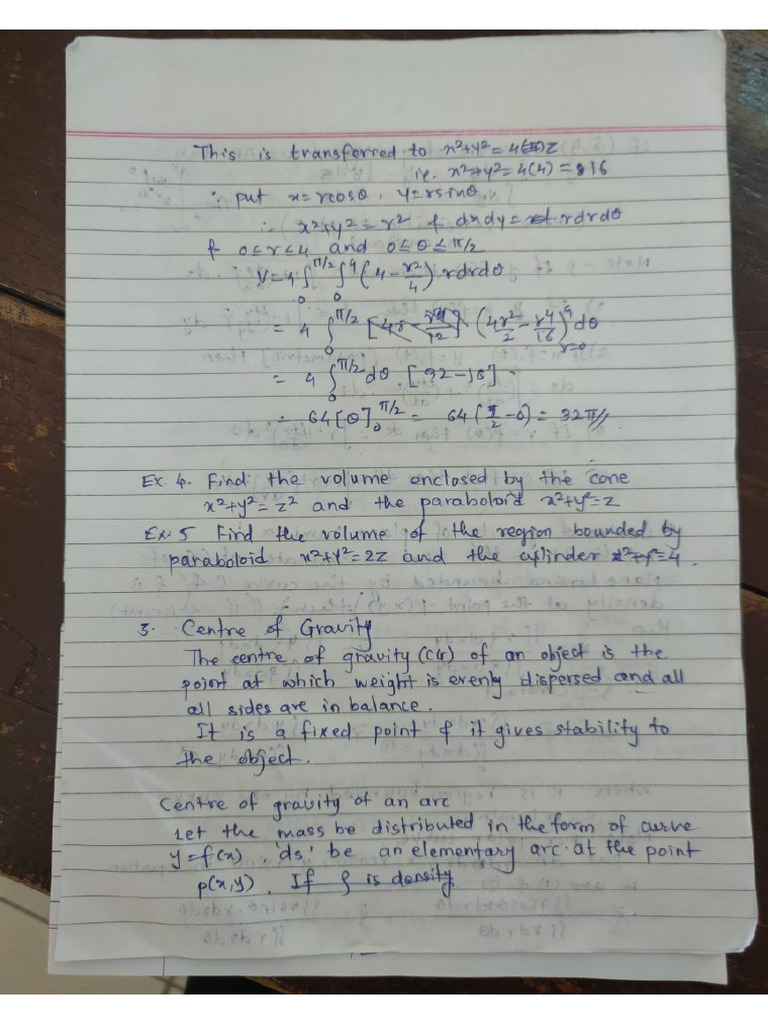 This is transferred to x²+y² = 4z
i.e. x²+y² = 4(4) = 16
∴ put x = rcosθ, y = rsinθ
∴ x²+y² = r² & dxdy = rdrdθ
& 0≤r≤4 and 0≤θ≤π/2
V = 4∫₀^π/2 ∫₀^4 (4 - r²/4) rdrdθ
= 4 ∫₀^π/2 (4r²/2 - r⁴/16)⁴_r=0 dθ
= 4 ∫₀^π/2 dθ [32-16]
= 64[θ]₀^π/2 = 64(π/2 - 0) = 32π//
Ex. 4. Find the volume enclosed by the cone
x²+y² = z² and the paraboloid x²+y² = z
Ex. 5 Find the volume of the region bounded by
paraboloid x²+y² = 2z and the cylinder x²+y² = 4.
3. Centre of Gravity
The centre of gravity (CG) of an object is the
point at which weight is evenly dispersed and all
all sides are in balance.
It is a fixed point & it gives stability to
the object.
Centre of gravity of an arc
Let the mass be distributed in the form of curve
y = f(x). 'ds' be an elementary arc at the point
p(x,y). If ρ is density